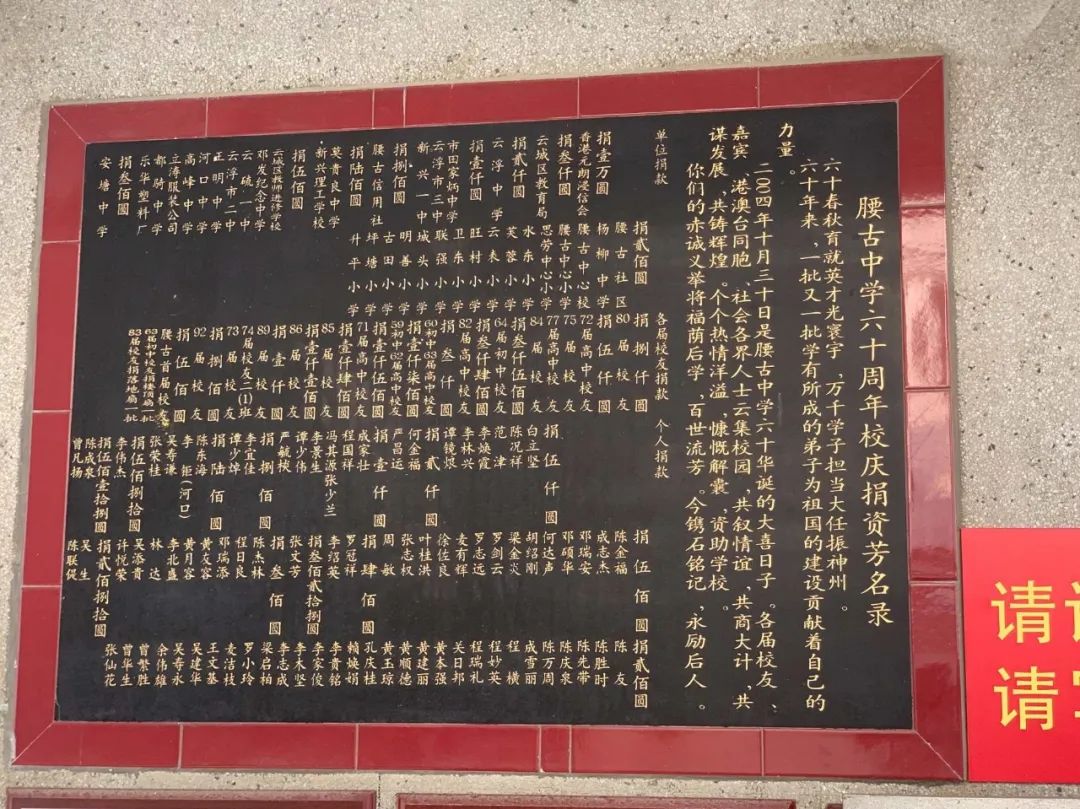 腰古中学六十周年校庆捐资芳名录
六十春秋育就英才光寰宇，万千学子担当大任振神州。
六十年来，一批又一批学有所成的弟子为祖国的建设贡献着自己的
力量。
二00四年十月三十日是腰古中学六十华诞的大喜日子。各届校友、
嘉宾、港澳台同胞、社会各界人士云集校园，共叙情谊，共商大计，共
谋发展，共铸辉煌。个个热情洋溢，慷慨解囊，资助学校。
你们的赤诚义举将福荫后学，百世流芳。今镌石铭记，永励后人。
单位捐款
捐壹万圆
香港元朗浸信会
捐叁仟圆
云城区教育局
捐贰仟圆
云浮中学
捐壹仟圆
市田家炳中学
云浮市三中
新兴一中
捐捌佰圆
腰古信用社
捐陆佰圆
莫贵良中学
新兴理工学校
捐伍佰圆
云城区教师进修学校
邓发纪念中学
云硫一中
云浮市二中
正明中学
河口中学
高峰中学
立涛服装公司
都骑中学
乐华塑料厂
捐叁佰圆
安塘中学
捐贰佰圆
腰古社区
杨柳中学
腰古中心校
腰古中心小学
思劳中心小学
水东小学
芙蓉小学
云表小学
旺村小学
卫东小学
联强小学
城头小学
明善小学
古田小学
坪塘小学
升平小学
各届校友捐款
捐捌仟圆
80届校友
捐伍仟圆
72届高中校友
75届校友
77届高中校友
84届校友
捐叁仟伍佰圆
64届初中校友
捐叁仟肆佰圆
82届高中校友
捐叁仟圆
60初中63届高中校友
捐壹仟柒佰圆
59初中62届高中校友
捐壹仟伍佰圆
71届高中校友
捐壹仟肆佰圆
85届校友
捐壹仟壹佰圆
86届校友
捐壹仟圆
89届校友
74届校友(2)(1)班
73届校友
92届校友
捐伍佰圆
腰古首届校友
62届初中校友捐楼顶扇一批
83届校友捐落地扇一批
个人捐款
捐伍仟圆
白立坚
陈况祥
范津
李焕霞
李林兴
谭镜焜
捐贰仟圆
何金福
严昌远
捐壹仟圆
成家壮
程国祥
冯其源张少兰
李景生
谭少伟
严毓棪
捐捌佰圆
李宜佳
谭少焯
捐陆佰圆
陈东海
李钜(河口)
吴寿谦
张荣桂
捐伍佰捌拾圆
李伟杰
捐伍佰壹拾捌圆
陈成泉
曾凡扬
捐伍佰圆
陈金福
成志杰
邓瑞安
邓硕华
何达声
胡绍刚
梁金炎
罗剑云
罗志远
麦有辉
徐佐良
叶桂洪
张志权
周敏
捐肆佰圆
罗冠祥
李绍英
捐叁佰贰拾捌圆
张文芳
捐叁佰圆
陈杰林
程日良
邓瑞添
黄友容
黄月容
李北盛
林达
吴添贵
许悦荣
捐贰佰捌拾圆
关生
陈联促
捐贰佰圆
陈友
陈胜时
陈先带
陈庆泉
陈万周
成雪丽
程横
程妙英
程瑞礼
关日邦
黄本强
黄建丽
黄顺德
黄玉琼
孔庆桂
赖焕娟
李贵铭
李家俊
李木坚
李志成
梁启柏
罗小玲
麦洁枝
王文基
吴建华
吴寿永
余伟雄
曾繁胜
曾华生
张仙花
请
请